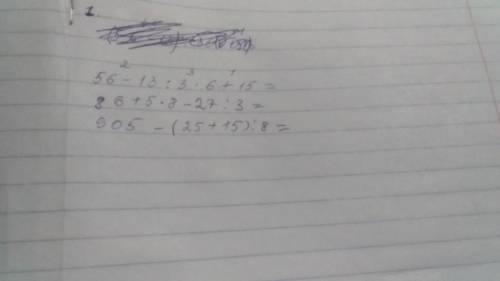 1.
2 3 1
56 - 13 : 3 · 6 + 15 =
86 + 5 · 8 - 27 : 3 =
905 - (25 + 15) : 8 =